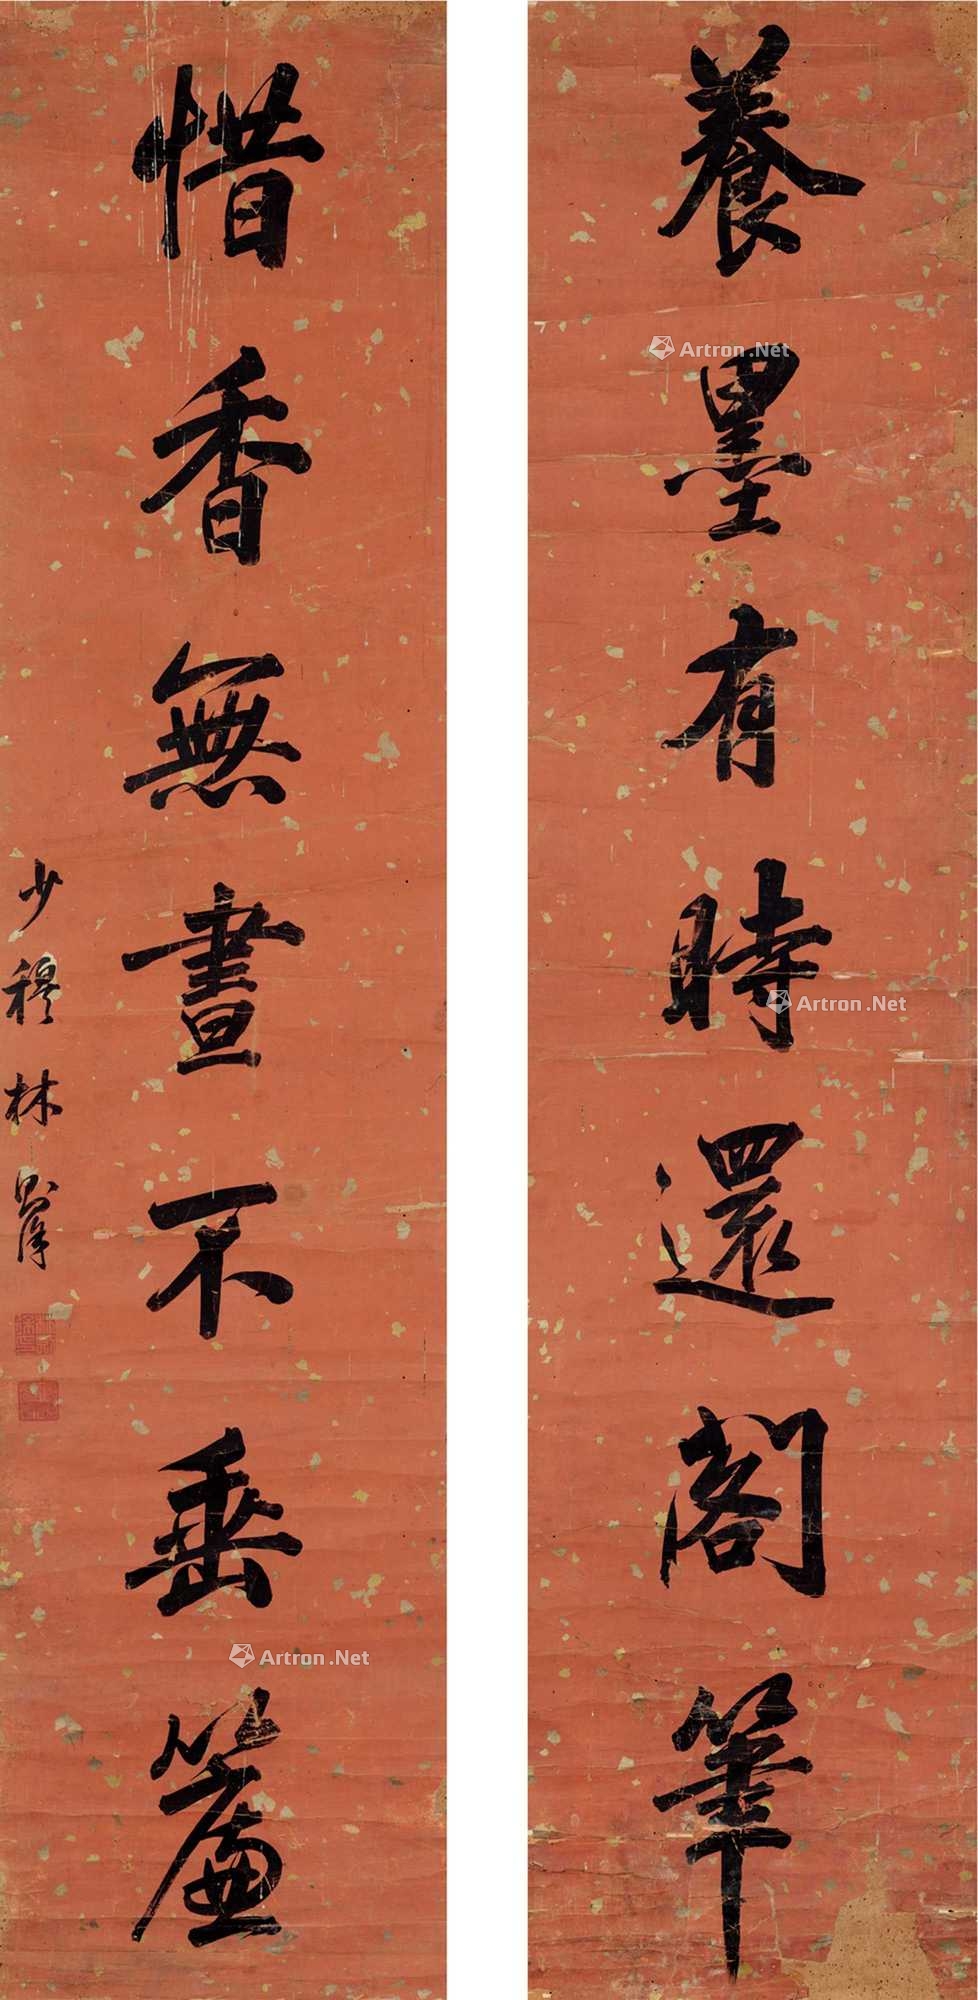 養墨有時還閣筆
惜香無晝不垂簾
少穆林則徐
Artron.Net
Artron.Net
Artron.Net